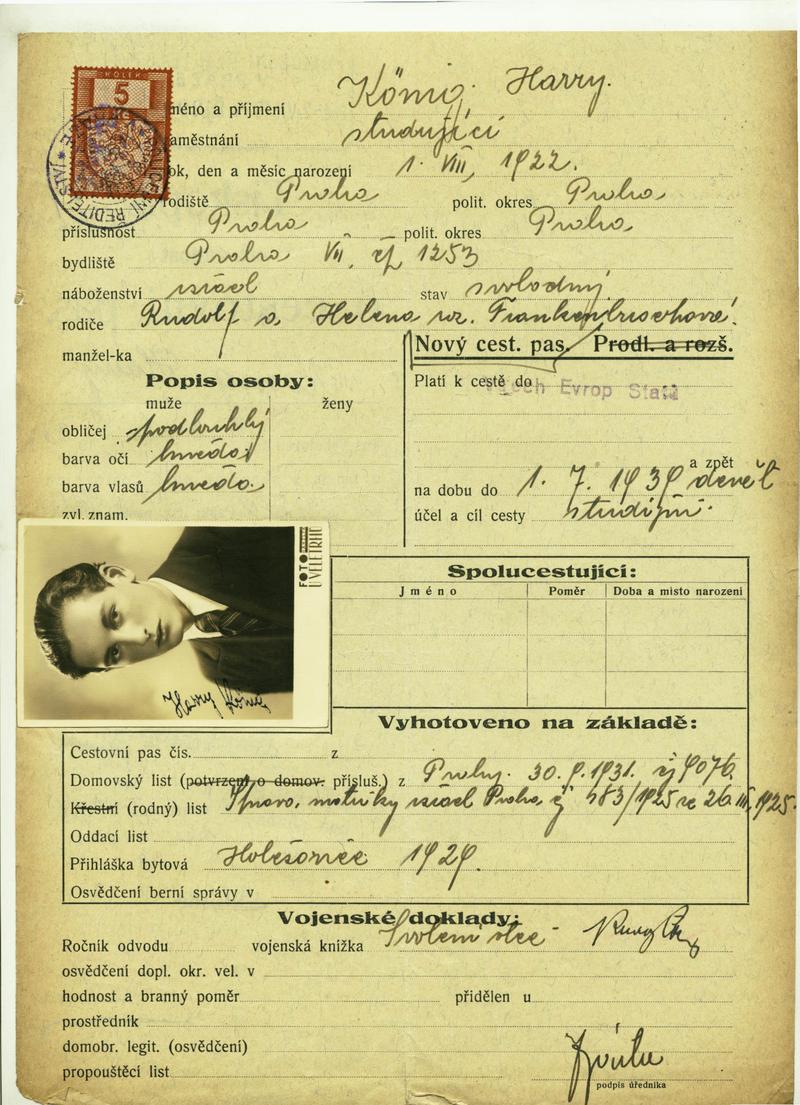 KOLEK
5
jméno a příjmení König Harry.
zaměstnání studující
rok, den a měsíc narození 1. VIII, 1922.
rodiště Praha polit. okres Praha
příslušnost Praha polit. okres Praha
bydliště Praha VII, čp 1253
náboženství israel stav svobodný
rodiče Rudolf a Helena roz. Frankenbuschová.
manžel-ka
Nový cest. pas. Prodl. a rozš.
Popis osoby:
muže ženy
Platí k cestě do všech Evrop Států
obličej podlouhlý
barva očí hnědá
barva vlasů hnědá
zvl. znam.
a zpět
na dobu do 1. 7. 1939
účel a cíl cesty studijní.
FOTO
U VELETRHŮ
Harry König
Spolucestující:
Jméno Poměr Doba a místo narození
Vyhotoveno na základě:
Cestovní pas čís. z
Domovský list (potvrzení o domov. přísluš.) z Prahy. 30.9.1931. čj 9076.
Křestní (rodný) list Správ. matriky israel Praha čj 483/1925 ze 26.III.1925.
Oddací list
Přihláška bytová Holešovice 1929.
Osvědčení berní správy v
Vojenské doklady:
Ročník odvodu vojenská knížka Svolení otce
osvědčení dopl. okr. vel. v
hodnost a branný poměr přidělen u
prostředník
domobr. legit. (osvědčení)
propouštěcí list
podpis úředníka